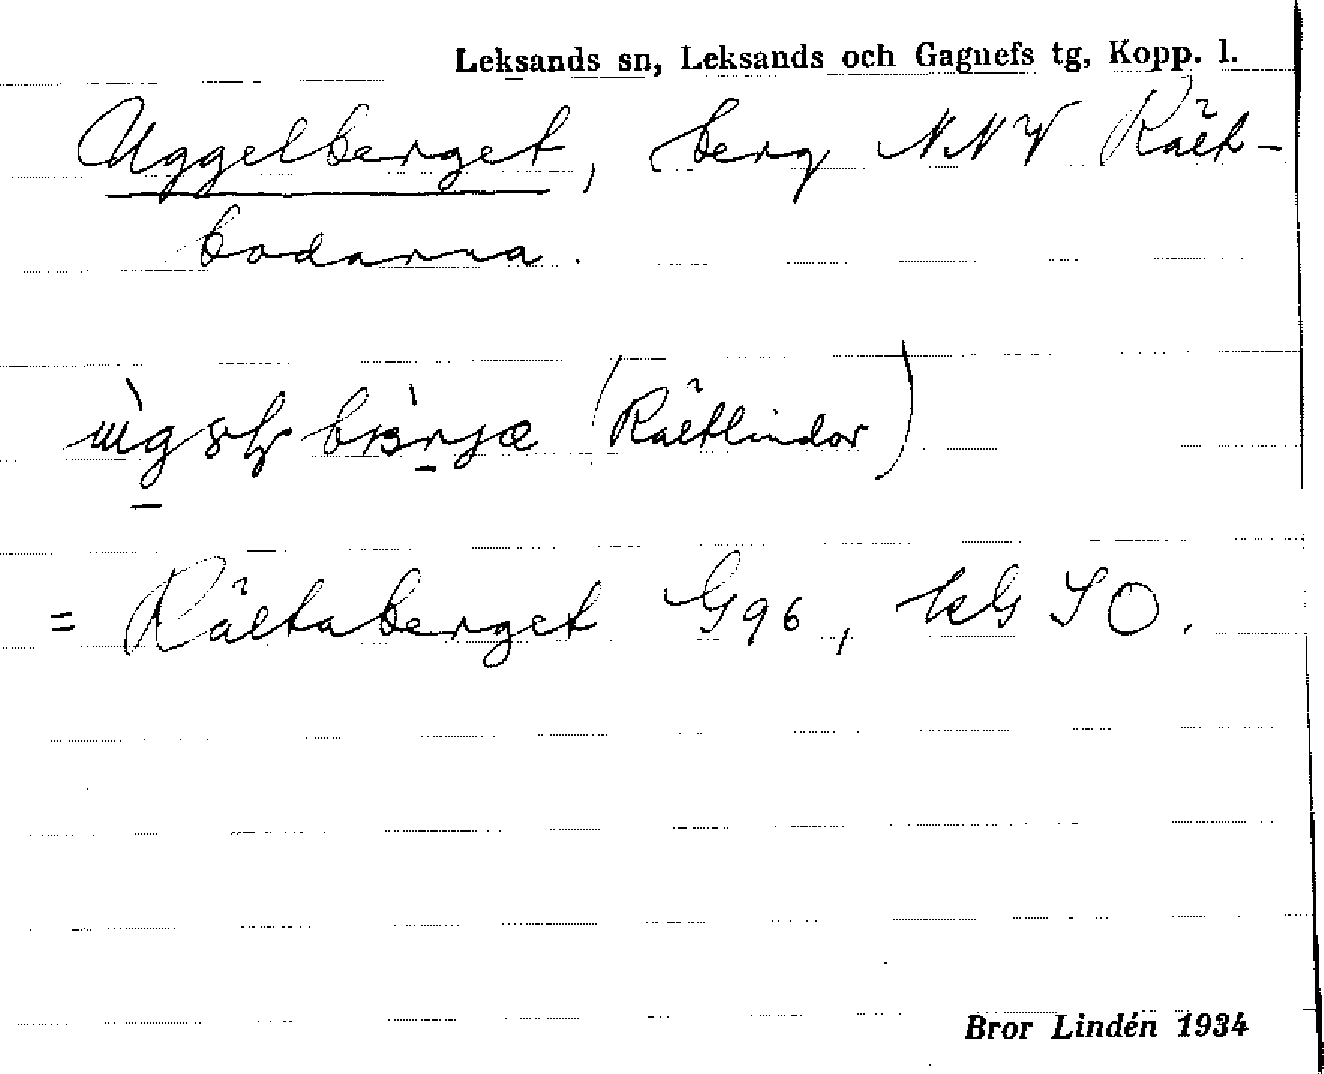 Leksands sn, Leksands och Gagnefs tg, Kopp. l.
Uggelberget, berg NNV Rält-
bodarna.
(Rältlindor)
= Rältaberget G96, kG SO.
Bror Lindén 1934